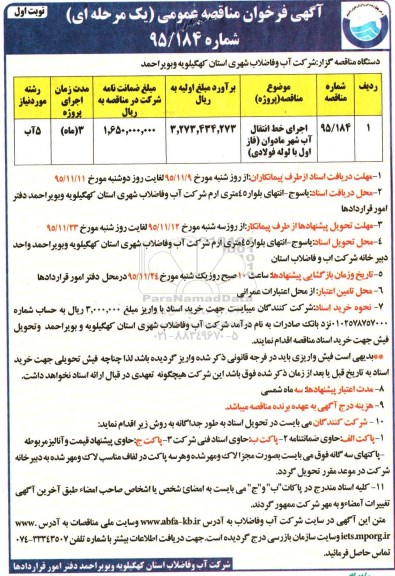 نوبت اول
آگهی فرخوان مناقصه عمومی (یک مرحله ای)
شماره ۹۵/۱۸۴
دستگاه مناقصه گزار:شرکت آب وفاضلاب شهری استان کهگیلویه وبویراحمد
ردیف | شماره مناقصه | موضوع مناقصه(پروژه) | برآورد مبلغ اولیه به ریال | مبلغ ضمانت نامه شرکت در مناقصه به ریال | مدت زمان اجرای پروژه | رشته موردنیاز
۱ | ۹۵/۱۸۴ | اجرای خط انتقال آب شهر مادوان (فاز اول با لوله فولادی) | ۳,۲۷۳,۴۳۴,۲۷۳ | ۱,۶۵۰,۰۰۰,۰۰۰ | ۳(ماه) | ۵آب
۱-مهلت دریافت اسناد ازطرف پیمانکاران:از روز شنبه مورخ ۹۵/۱۱/۹ لغایت روز دوشنبه مورخ ۹۵/۱۱/۱۱
۲-محل دریافت اسناد:یاسوج-انتهای بلوار۴۵متری ارم شرکت آب وفاضلاب شهری استان کهگیلویه وبویراحمد دفتر
امور قراردادها
۳-مهلت تحویل پیشنهادها از طرف پیمانکار:از روز سه شنبه مورخ ۹۵/۱۱/۱۲ لغایت روز شنبه مورخ ۹۵/۱۱/۲۳
۴-محل تحویل اسناد:یاسوج-انتهای بلوار۴۵متری ارم شرکت آب وفاضلاب شهری استان کهگیلویه وبویراحمد واحد
دبیرخانه شرکت آب و فاضلاب استان
۵-تاریخ وزمان بازگشایی پیشنهادها: ساعت ۱۰ صبح روزیک شنبه مورخ ۹۵/۱۱/۲۴ درمحل دفتر امور قراردادها
۶-محل تامین اعتبار: از محل اعتبارات عمرانی
۷- نحوه خرید اسناد:شرکت کنندگان میبایست جهت خرید اسناد با واریز مبلغ ۳,۰۰۰,۰۰۰ ریال به حساب شماره
۰۱۰۲۵۷۸۷۵۷۰۰۰ نزد بانک صادرات به نام درآمد شرکت آب وفاضلاب شهری استان کهگیلویه و بویراحمد وتحویل
فیش جهت خرید اسناد مناقصه اقدام نمایند.
**بدیهی است فیش واریزی باید در فرجه قانونی ذکر شده واریز گردیده باشد لذا چنانچه فیش تحویلی جهت خرید
اسناد به تاریخ قبل یا بعد از زمان ذکر شده فوق باشد این شرکت هیچگونه تعهدی در قبال ارائه اسناد نخواهد داشت.
۸- مدت اعتبار پیشنهادها: سه ماه شمسی
۹- هزینه درج آگهی به عهده برنده مناقصه میباشد.
۱۰- شرکت کنندگان می بایست در تحویل اسناد به طور جداگانه به روش زیر اقدام نمایند:
۱-پاکت الف:حاوی ضمانتنامه ۲-پاکت ب:حاوی اسناد فنی شرکت ۳-پاکت ج:حاوی پیشنهاد قیمت وآنالیزمربوطه
-پاکتهای سه گانه فوق می بایست بصورت مجزا لاک ومهرشده وهرسه پاکت در لفاف مناسب لاک ومهرشده به دبیرخانه
شرکت در موعد مقرر تحویل گردد.
۱۱- کلیه اسناد مندرج در پاکات"ب"و"ج"می بایست به امضائ شخص یا اشخاص صاحب امضاء طبق آخرین آگهی
تغییرات امضاءو به مهر شرکت ممهور گردند.
متن این آگهی در سایت شرکت آب وفاضلاب به آدرس www.abfa-kb.ir وسایت ملی مناقصات به آدرس www.
iets.mporg.ir وسایت سازمان بازرسی درج گردیده است.جهت دریافت اطلاعات بیشتر با شماره تلفن ۳۳۳۴۳۵۰۷-۰۷۴
تماس حاصل فرمائید.
شرکت آب وفاضلاب استان کهگیلویه وبویراحمد دفتر امور قراردادها
ParsNamadData
۰۲۱-۸۸۳۴۹۶۷۰-۵